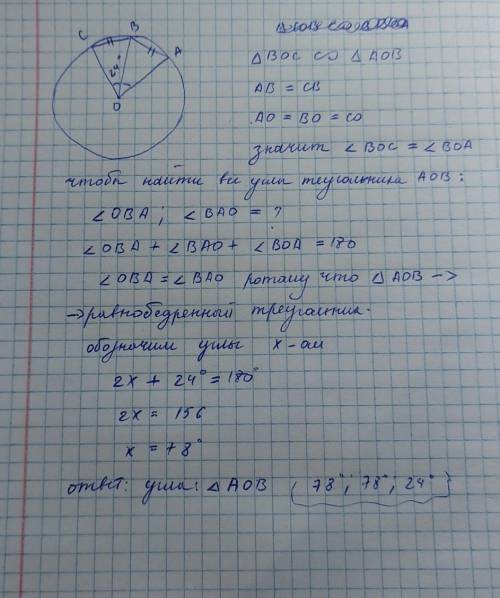 C B A
24°
O
△BOC ∽ △AOB
AB = CB
AO = BO = CO
значит ∠BOC = ∠BOA
чтобы найти все углы теугольника AOB:
∠OBA; ∠BAO = ?
∠OBA + ∠BAO + ∠BOA = 180
∠OBA = ∠BAO потому что △AOB –>
–> равнобедренный треугольник.
обозначим углы x-ам
2x + 24° = 180°
2x = 156
x = 78°
ответ: углы: △AOB (78°; 78°; 24°)